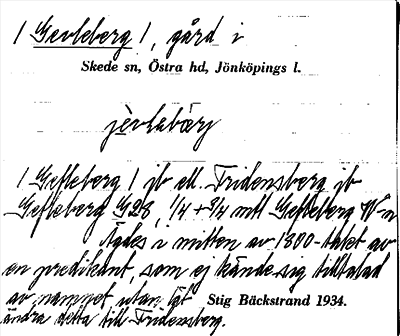 / Gevleberg /, gård i
Skede sn, Östra hd, Jönköpings l.
jèvləbærj
/ Gefleberg / jb ell. Fridensberg jb
Gefleberg G28, 1/4 + 3/4 mtl Gefleberg
Ägdes i mitten av 1800-talet av
en predikant, som ej kände sig tilltalad
av namnet utan lät Stig Bäckstrand 1934.
ändra detta till Fridensberg.